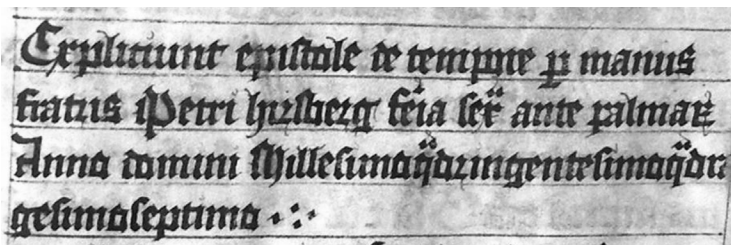 Expliciunt epistole de tempore ꝑ manus
fratris Petri hirsberg fe͞ia sex͞ ante palmaꝝ
Anno domini Millesimoq̈dringentesimoq̈dra
gesimoseptimo